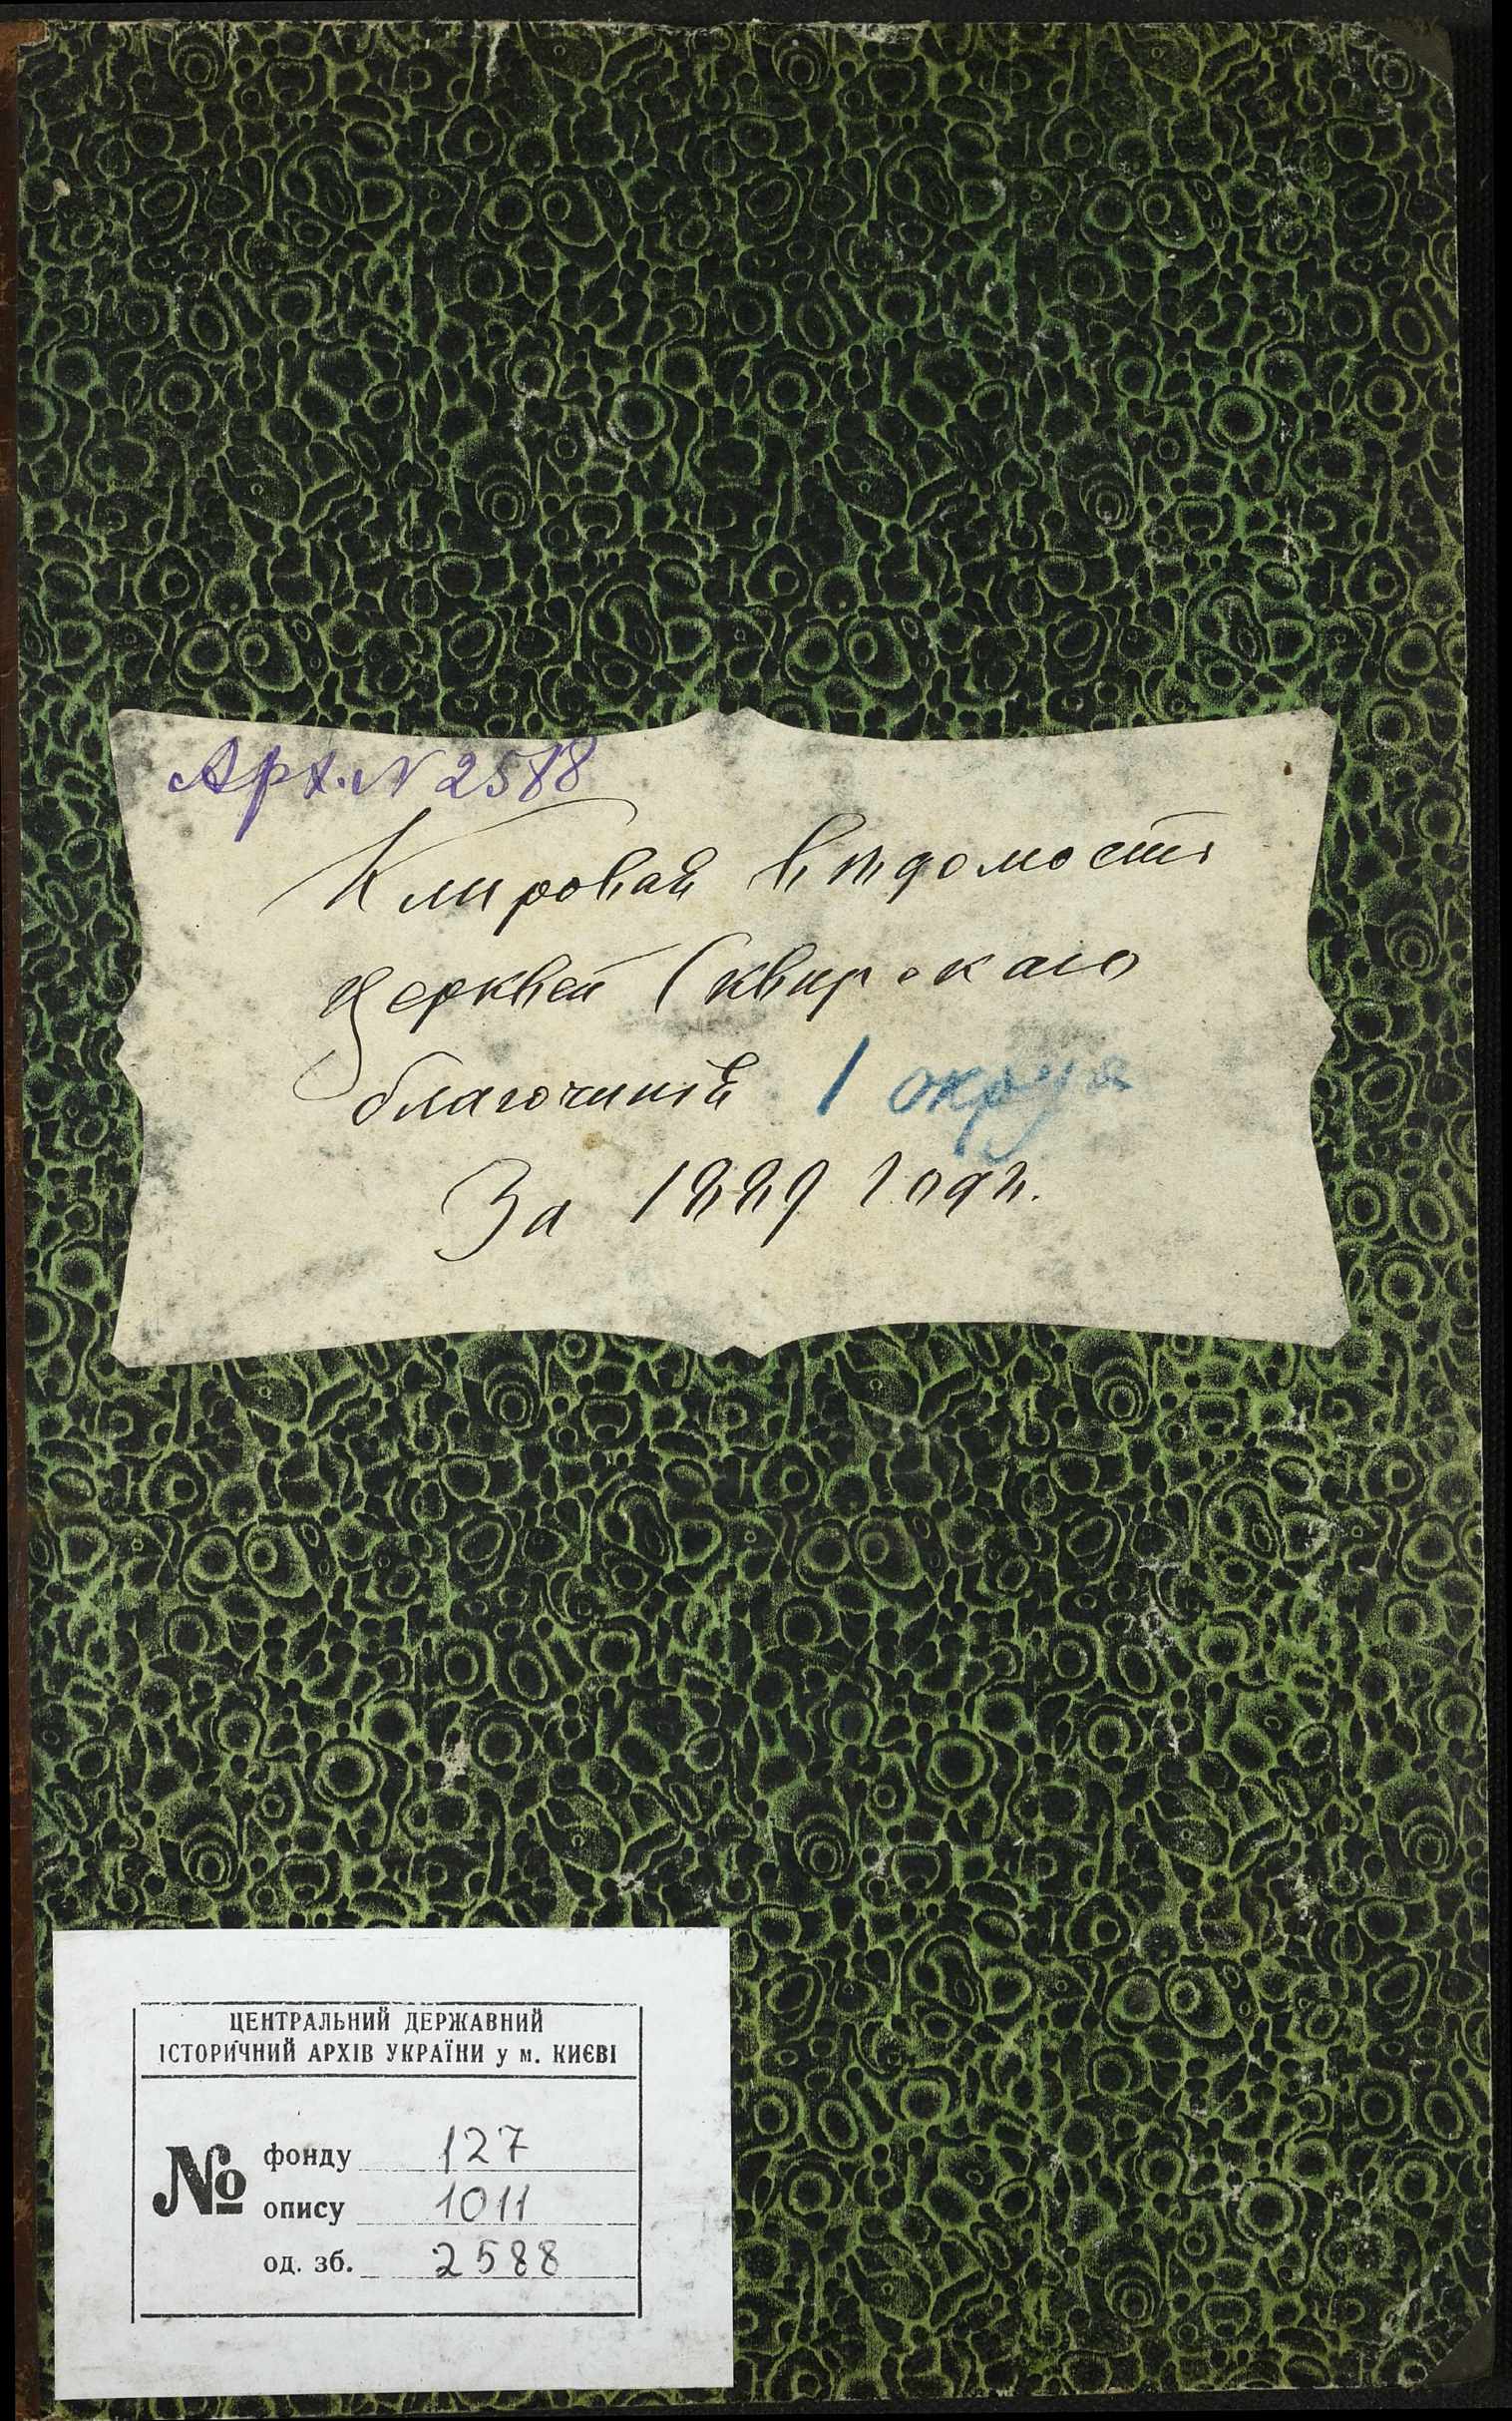 Арх. N 2588
Клировая вѣдомость
церквей Сквирскаго
благочинія 1 округа
За 1889 годъ.
ЦЕНТРАЛЬНИЙ ДЕРЖАВНИЙ
ІСТОРИЧНИЙ АРХІВ УКРАЇНИ у м. КИЄВІ
№
фонду 127
опису 1011
од. зб. 2588